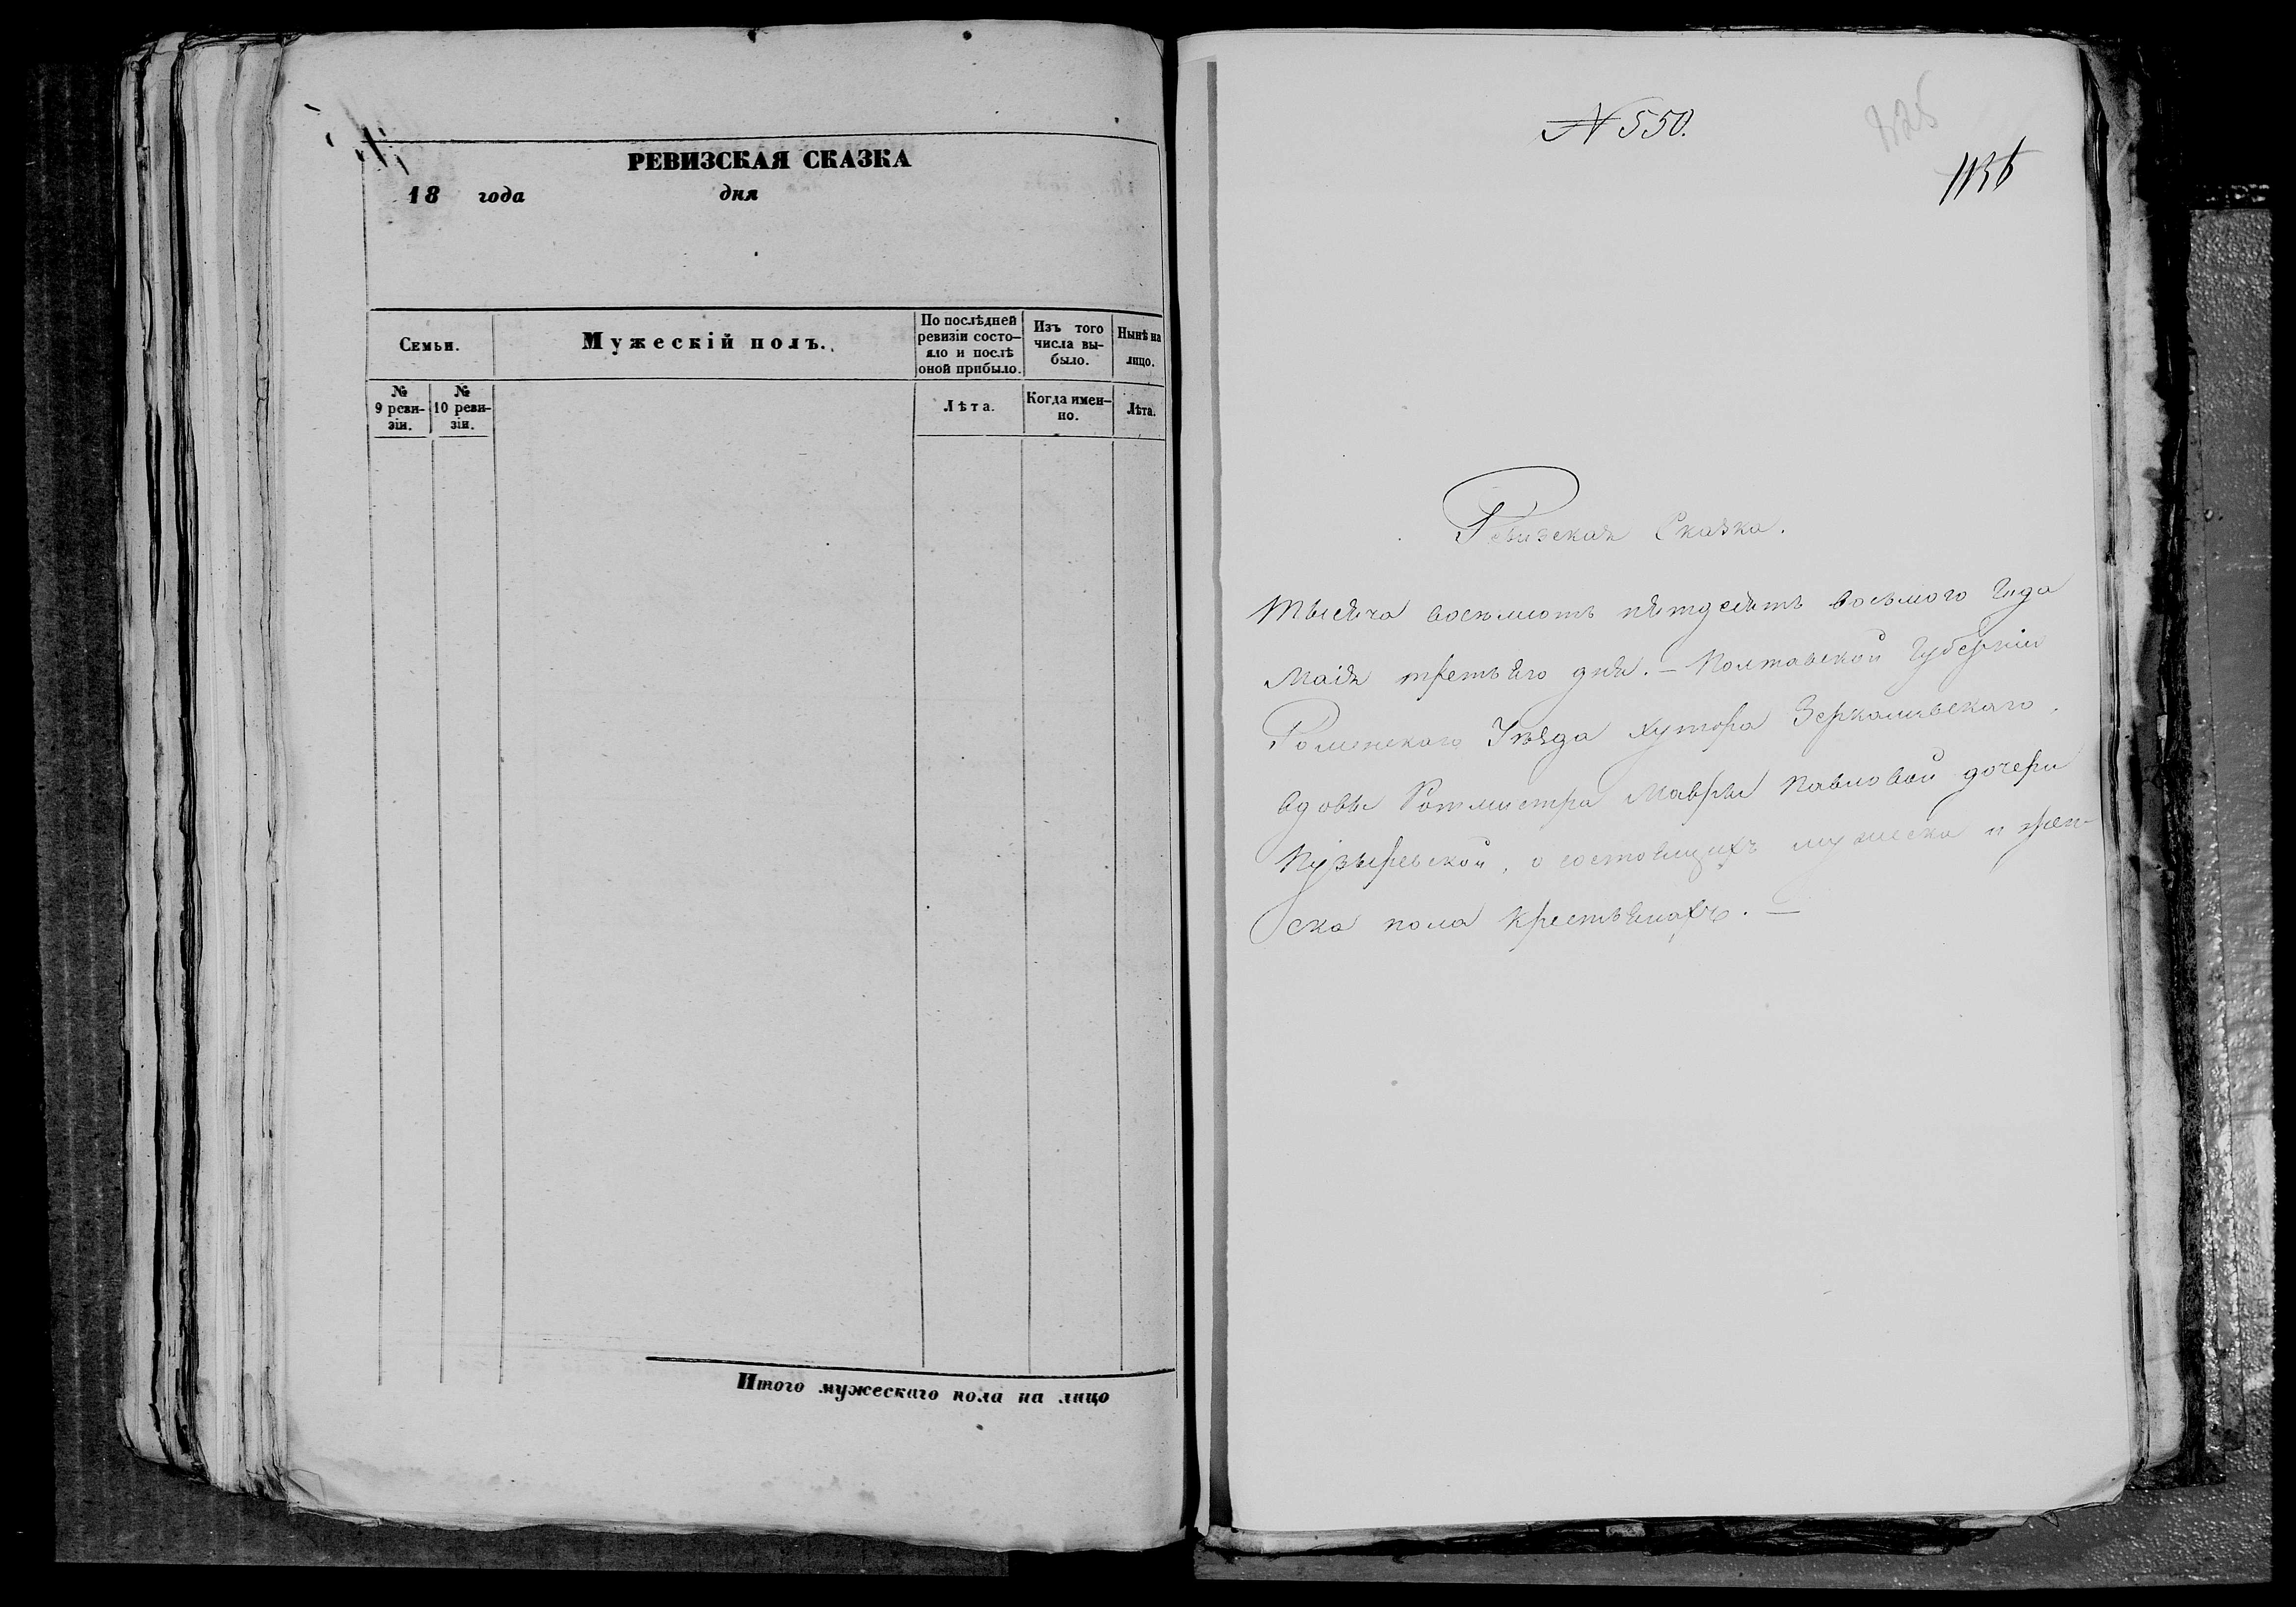 РЕВИЗСКАЯ СКАЗКА
18 года дня
Семьи.
Мужескій полъ.
По послѣдней ревизіи состояло и послѣ оной прибыло.
Изъ того числа выбыло.
Нынѣ на лицо.
№ 9 ревизіи.
№ 10 ревизіи.
Лѣта.
Когда именно.
Лѣта.
Итого мужескаго пола на лицо
№ 550.
Ревизская Сказка.
Тысяча восемьсотъ пятдесятъ восьмого Года
Маія третьяго дня. – Полтавской Губерніи
Роменскаго Уѣзда хутора
вдовы Ротмистра Мавры Павловой дочери
Пузыревской, о состоящихъ мужеска и жен-
ска пола крестьянахъ. –